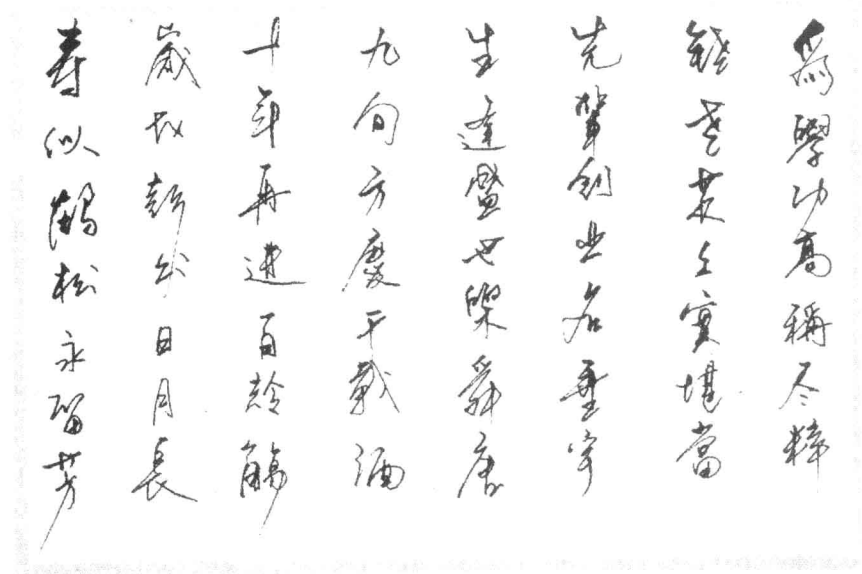 為學功高稱尽粹
錢老實堪當
先輩創业名垂宇
生逢盛世樂舜唐
九旬方慶千載酒
十年再進百齡觴
歲彭公日月長
壽似鶴松永留芳